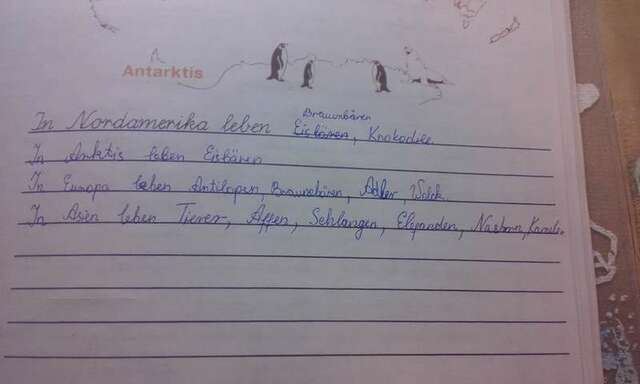 Antarktis
Braunbären
In Nordamerika leben Eisbären, Krokodile
In Arktis leben Eisbären
In Europa leben Antilopen, Braunbären, Adler,
In Asien leben Tierer, Affen, Schlangen, Elefanden, Nashorn, Kamele.